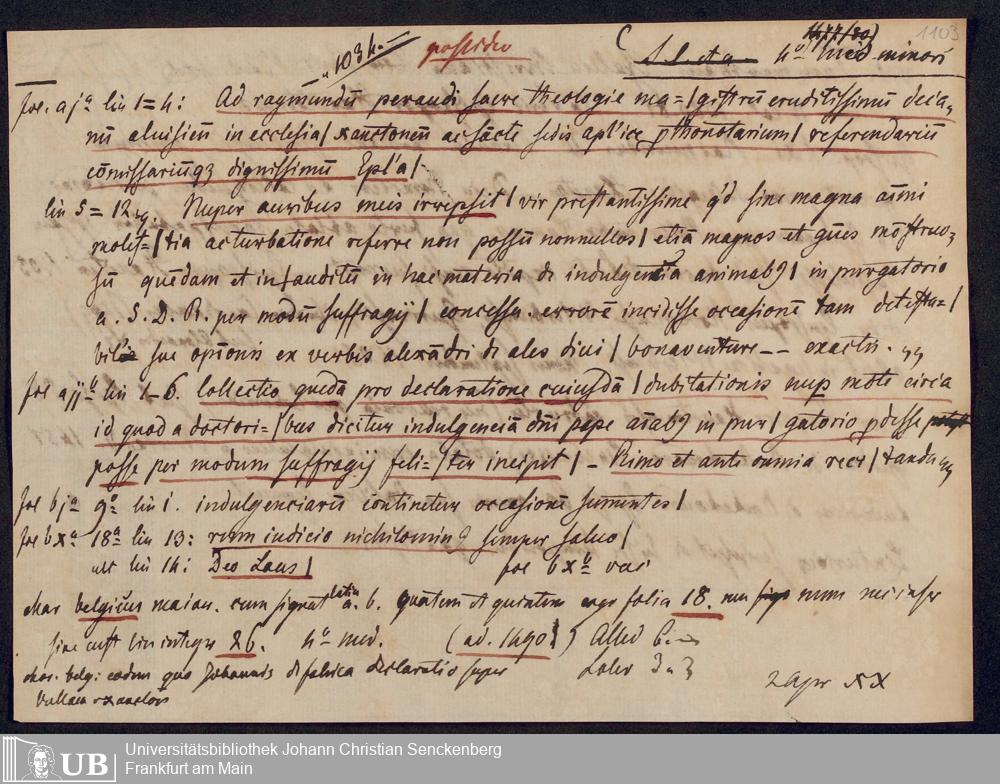 103 h.
possideo
C
1477/80)
1103
4º minori
foe. aja lin 1=4: Ad raymundū peraudi sacre theologie ma=/gistrū eruditissimū deca,
nū aluisieñ in ecclesia/ xanctoneñ ac sācte sedis apl'ice p̱thonotarium/ referendariū
cōmissariūqȝ dignissimū Epl'a/
lin 5=12 Nuper auribus meis irrepsit/ vir prestantissime q'd sine magna aīmi
molest=/tia ac turbatione referre non possū nonnullos/ etiā magnos et gūes mōstruo,
sū quēdam et in/auditū in hac materia de indulgentia animabȝ/ in purgatorio
a. S. D. N. per modū suffragij/ concessa. errorē incidisse occasionē tam detesta=/
bilis sue opīonis ex verbis alexādri de ales diui/ bonauenture -- exactis.
foe ajjb lin 1-6. Collectio quedā pro declaratione cuiusdā/ dubitationis nup mote circa
id quod a doctori=/bus dicitur indulgenciā dnī pape aīabȝ in pur/gatorio p̱desse
posse per modum suffragij feli=/ter incipit/ - Primo et ante omnia reci/tandu
foe bja 9a lin 1. indulgenciarū cōtinetur occasionē sumentes/
foe bxa 18a lin 13: rum iudicio nichilominȝ semper saluo/
ult lin 14: Deo Laus/ foe bxb vac
char belgicus maior. cum signat latin a. b. quatern et quintern ergo folia 18. non num nec inscr
sine cust lin integre 26. 4º med. (ad. 1490) Alled 6.
char. belg: eodem quo Johannis de fabrica declaratio super Laled 3 a 3
bullam xxanctoñ
2 Apr XX
Universitätsbibliothek Johann Christian Senckenberg
Frankfurt am Main
UB